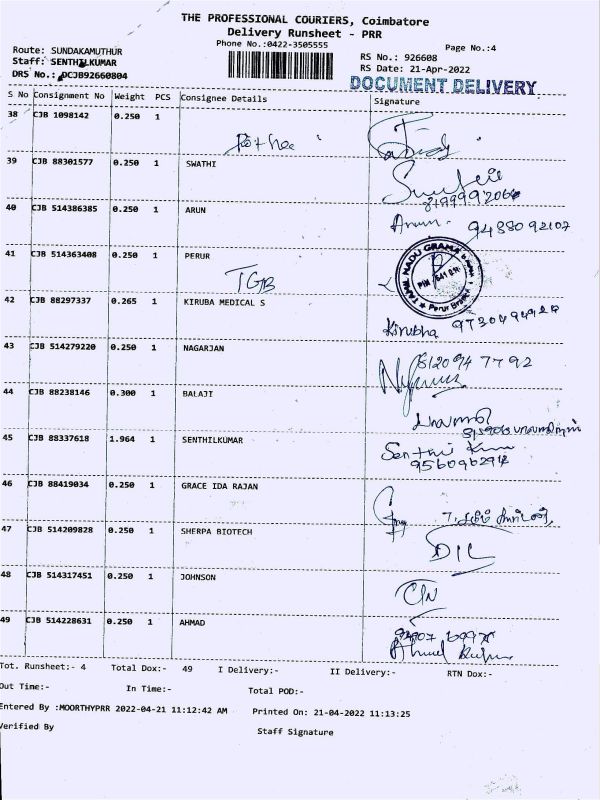 THE PROFESSIONAL COURIERS, Coimbatore
Delivery Runsheet - PRR
Phone No.:0422-3505555
Page No.:4
Route: SUNDAKAMUTHUR
Staff: SENTHILKUMAR
DRS No.: DCJB92660804
RS No.: 926608
RS Date: 21-Apr-2022
DOCUMENT DELIVERY
S No Consignment No Weight PCS Consignee Details Signature
38 CJB 1098142 0.250 1
39 CJB 88301577 0.250 1 SWATHI
40 CJB 514386385 0.250 1 ARUN
Arun. 9488092107
41 CJB 514363408 0.250 1 PERUR
TGB
TAMIL NADU GRAMA BANK
Perur Branch
42 CJB 88297337 0.265 1 KIRUBA MEDICAL S
Kirubha
43 CJB 514279220 0.250 1 NAGARJAN
8120947792
44 CJB 88238146 0.300 1 BALAJI
45 CJB 88337618 1.964 1 SENTHILKUMAR
Senthil Kum
9560906294
46 CJB 88419034 0.250 1 GRACE IDA RAJAN
47 CJB 514209828 0.250 1 SHERPA BIOTECH
48 CJB 514317451 0.250 1 JOHNSON
49 CJB 514228631 0.250 1 AHMAD
Tot. Runsheet:- 4 Total Dox:- 49 I Delivery:- II Delivery:- RTN Dox:-
Out Time:- In Time:- Total POD:-
Entered By :MOORTHYPRR 2022-04-21 11:12:42 AM Printed On: 21-04-2022 11:13:25
Verified By Staff Signature